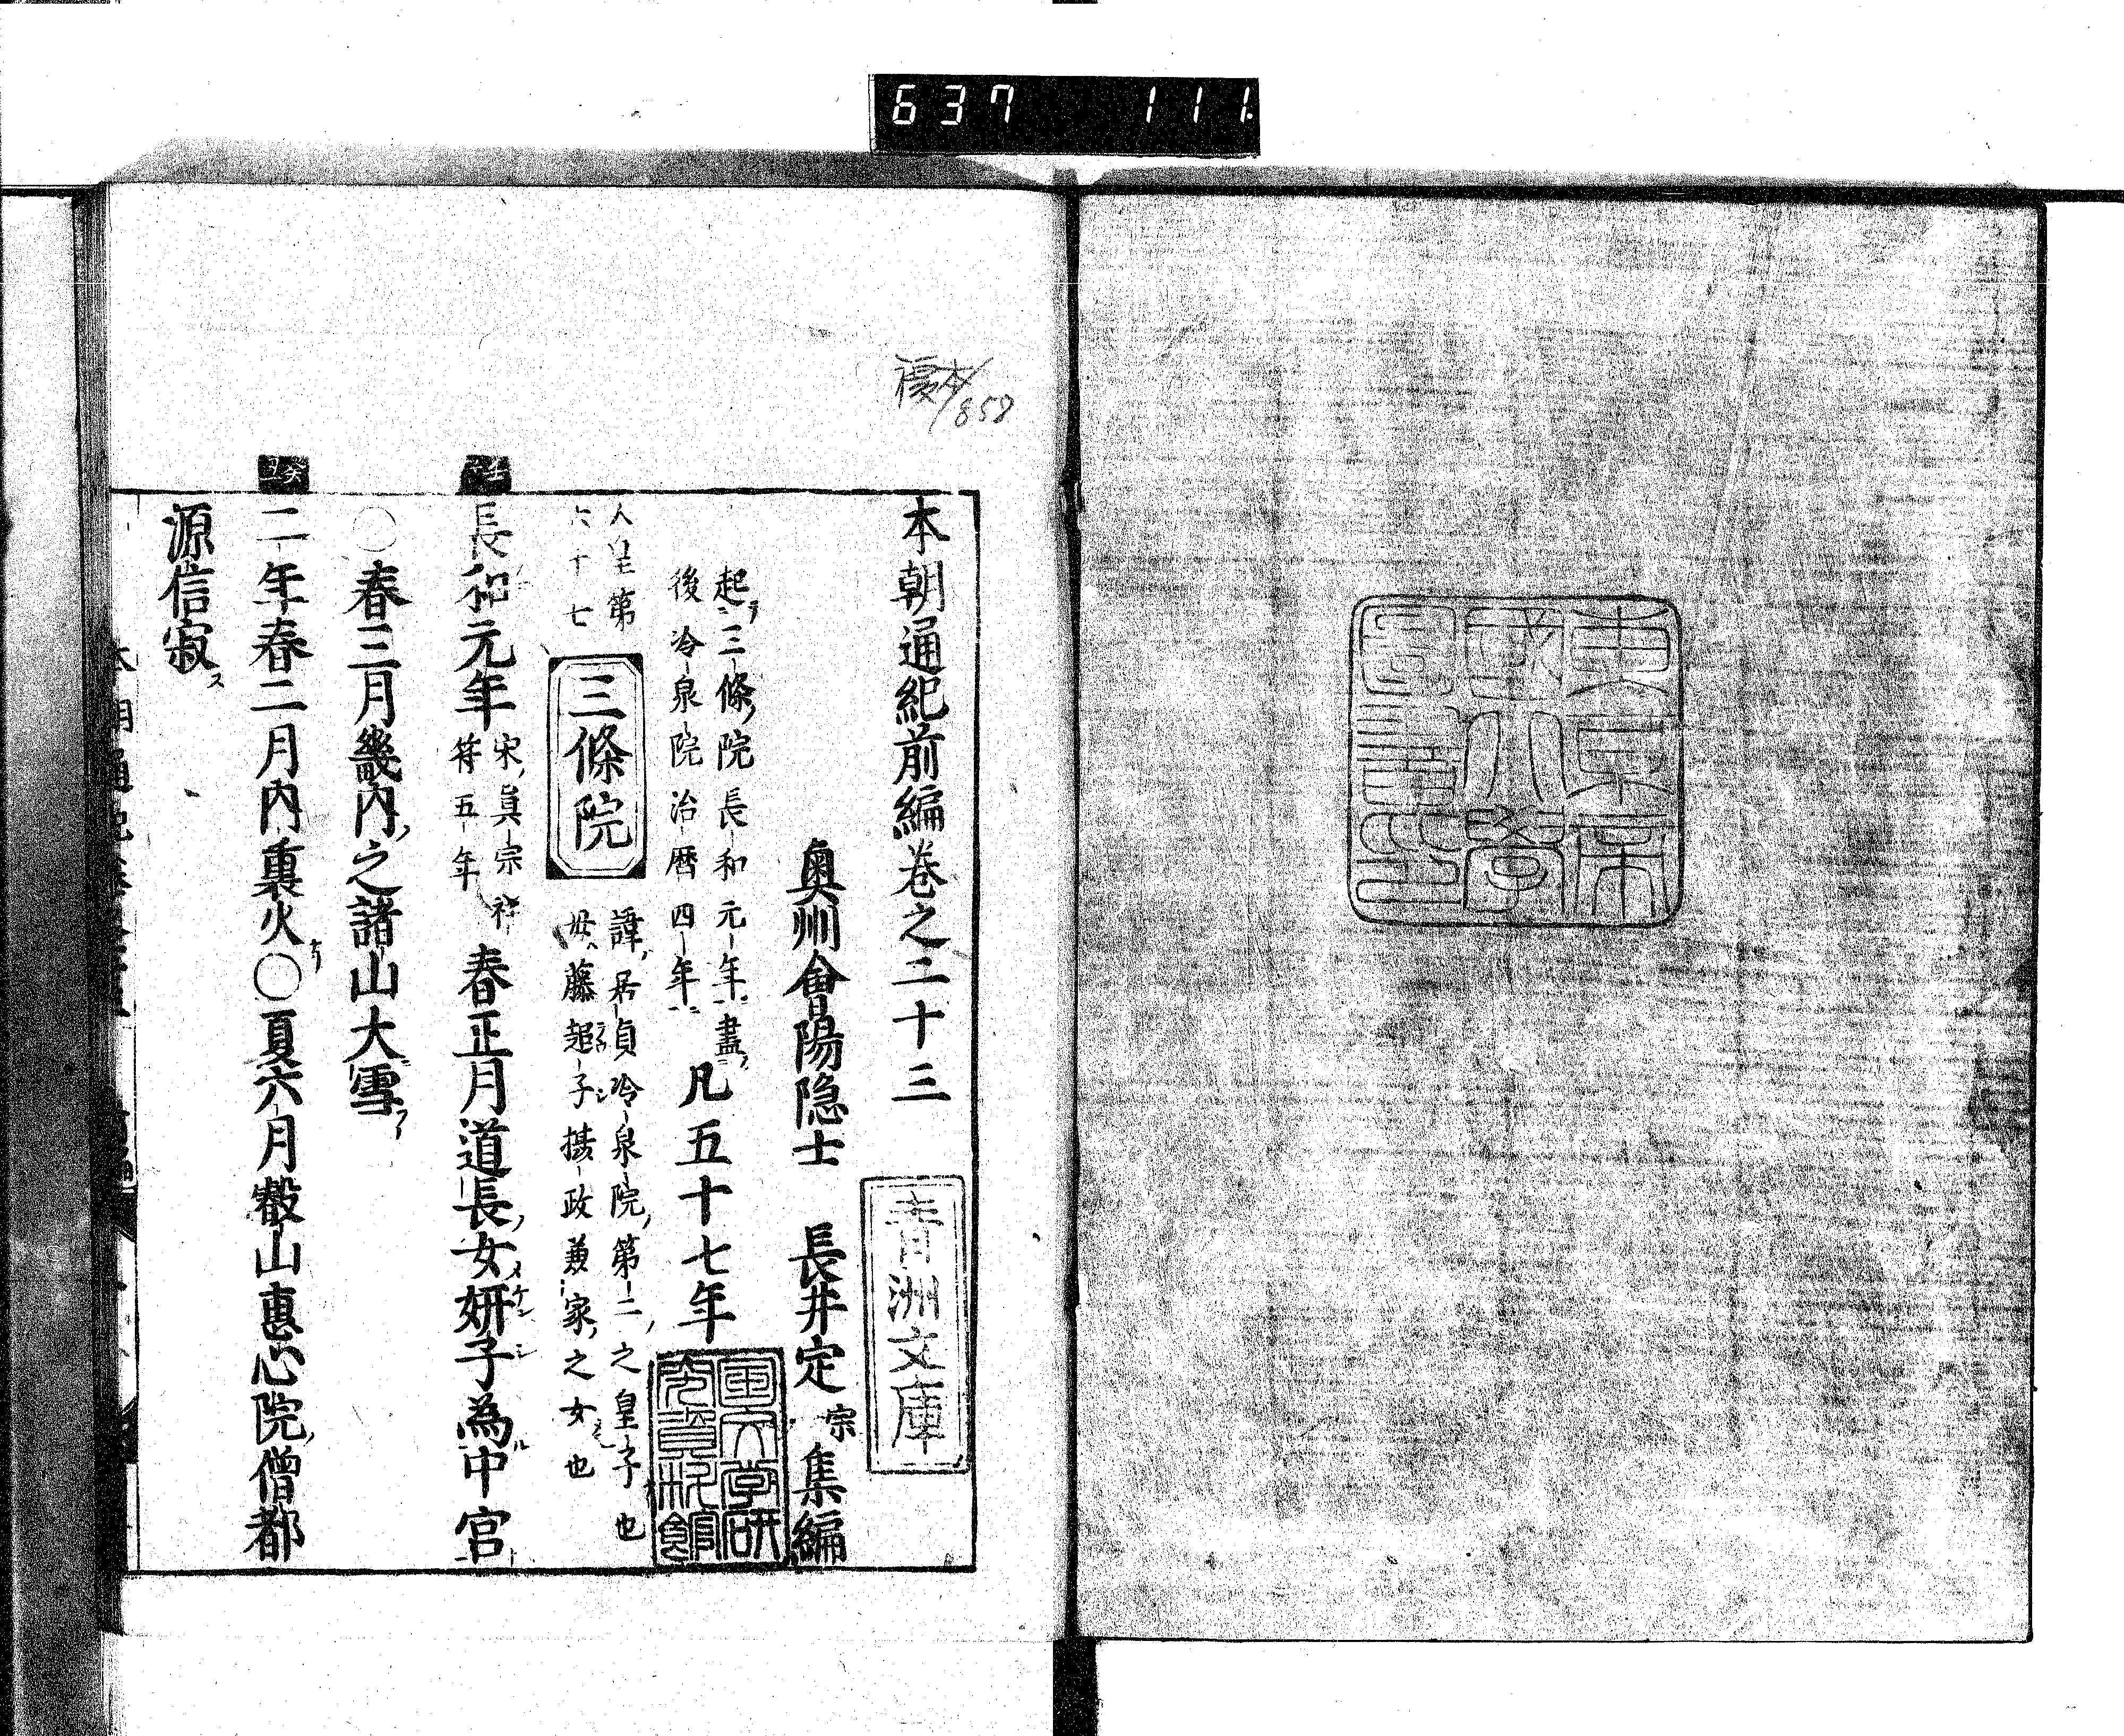 637 111
複本/858
東京帝
國大學
圖書印
本朝通紀前編卷之二十三
青洲文庫
奥州會陽隐士 長井定宗集編
起三條院長和元年盡
後冷泉院治暦四年
凡五十七年
國文學研
究資料館
人皇第
六十七
三條院
諱居貞冷泉院第二之皇子也
母藤超子攝政兼家之女也
壬子
長和元年
宋眞宗祥
符五年
春正月道長女妍子為中宮
○春三月畿内之諸山大雪
癸丑
二年春二月内裏火○夏六月叡山惠心院僧都
源信寂ス